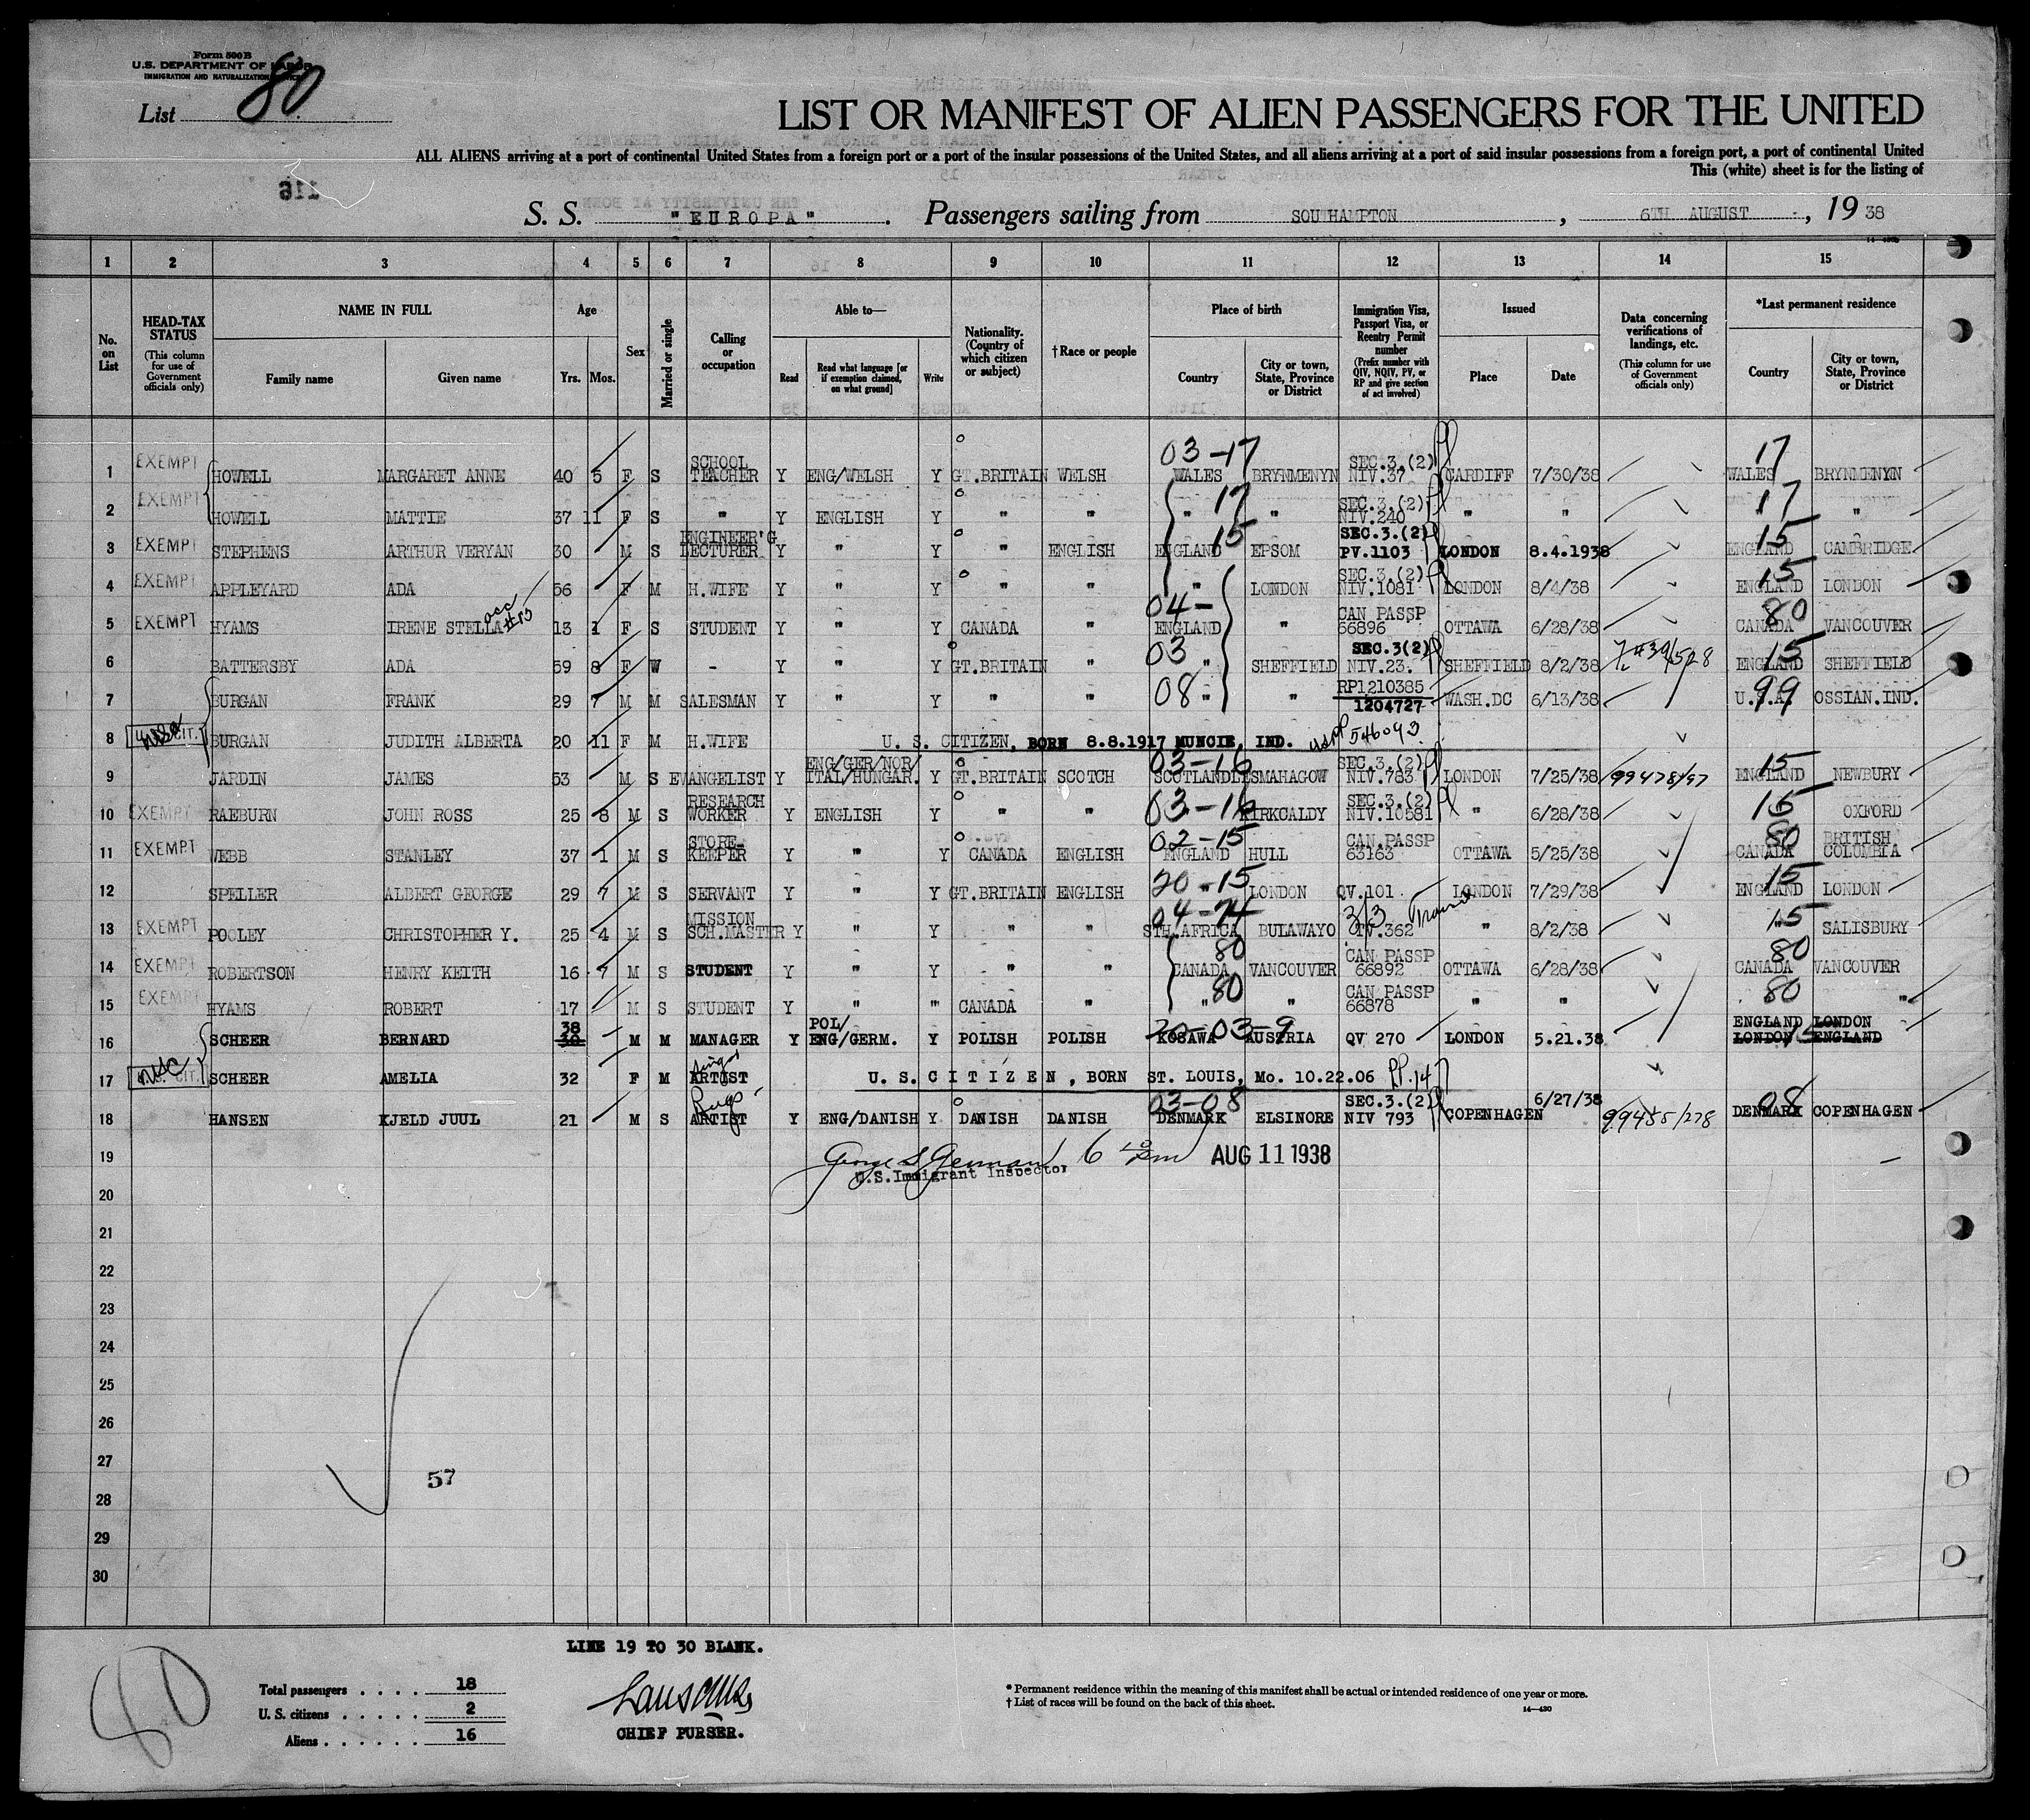 Form 500 B
U.S. DEPARTMENT OF LABOR
IMMIGRATION AND NATURALIZATION SERVICE
List 80
LIST OR MANIFEST OF ALIEN PASSENGERS FOR THE UNITED
ALL ALIENS arriving at a port of continental United States from a foreign port or a port of the insular possessions of the United States, and all aliens arriving at a port of said insular possessions from a foreign port, a port of continental United
This (white) sheet is for the listing of
116
S. S. "EUROPA". Passengers sailing from SOUTHAMPTON, 6TH AUGUST, 1938
1 2 3 4 5 6 7 8 9 10 11 12 13 14 15
No. on List
HEAD-TAX STATUS (This column for use of Government officials only)
NAME IN FULL Family name Given name
Age Yrs. Mos.
Sex
Married or single
Calling or occupation
Able to— Read Read what language [or if exemption claimed, on what ground] Write
Nationality. (Country of which citizen or subject)
†Race or people
Place of birth Country City or town, State, Province or District
Immigration Visa, Passport Visa, or Reentry Permit number (Prefix number with QIV, NQIV, PV, or RP and give section of act involved)
Issued Place Date
Data concerning verifications of landings, etc. (This column for use of Government officials only)
*Last permanent residence Country City or town, State, Province or District
1 EXEMPT HOWELL MARGARET ANNE 40 5 F S SCHOOL TEACHER Y ENG/WELSH Y GT.BRITAIN WELSH 03-17 WALES BRYNMENYN SEC.3.(2) NIV.37 CARDIFF 7/30/38 17 WALES BRYNMENYN
2 EXEMPT HOWELL MATTIE 37 11 F S " Y ENGLISH Y " " 17 " " SEC.3.(2) NIV.240 " " 17 " "
3 EXEMPT STEPHENS ARTHUR VERYAN 30 M S ENGINEER'G LECTURER Y " Y " ENGLISH 15 ENGLAND EPSOM SEC.3.(2) PV.1103 LONDON 8.4.1938 15 ENGLAND CAMBRIDGE
4 EXEMPT APPLEYARD ADA 56 F M H.WIFE Y " Y " " " LONDON SEC.3.(2) NIV.1081 LONDON 8/4/38 15 ENGLAND LONDON
5 EXEMPT HYAMS IRENE STELLA acc #15 13 1 F S STUDENT Y " Y CANADA " 04- ENGLAND " CAN PASSP 66896 OTTAWA 6/28/38 80 CANADA VANCOUVER
6 BATTERSBY ADA 59 8 F W - Y " Y GT.BRITAIN " 03 " SHEFFIELD SEC.3(2) NIV.23. SHEFFIELD 8/2/38 15 ENGLAND SHEFFIELD
7 BURGAN FRANK 29 7 M M SALESMAN Y " Y " " 08 " " RP1210385 1204727 WASH.DC 6/13/38 99 U.S.A. OSSIAN.IND.
8 U.S. CIT. BURGAN JUDITH ALBERTA 20 11 F M H.WIFE U. S. CITIZEN, BORN 8.8.1917 MUNCIE, IND. USPP 546093
9 JARDIN JAMES 53 M S EVANGELIST Y ENG/GER/NOR/ ITAL/HUNGAR. Y GT.BRITAIN SCOTCH 03-16 SCOTLAND LESMAHAGOW SEC.3.(2) NIV.783 LONDON 7/25/38 15 ENGLAND NEWBURY
10 EXEMPT RAEBURN JOHN ROSS 25 8 M S RESEARCH WORKER Y ENGLISH Y " " 03-16 KIRKCALDY SEC.3.(2) NIV.10581 " 6/28/38 15 OXFORD
11 EXEMPT WEBB STANLEY 37 1 M S STORE- KEEPER Y " Y CANADA ENGLISH 02-15 ENGLAND HULL CAN.PASSP 63163 OTTAWA 5/25/38 80 CANADA BRITISH COLUMBIA
12 SPELLER ALBERT GEORGE 29 7 M S SERVANT Y " Y GT.BRITAIN ENGLISH 20-15 " LONDON QV.101 LONDON 7/29/38 15 ENGLAND LONDON
13 EXEMPT POOLEY CHRISTOPHER Y. 25 4 M S MISSION SCH.MASTER Y " Y " " 04-74 STH.AFRICA BULAWAYO 3/3 TV.362 Transit " 8/2/38 15 " SALISBURY
14 EXEMPT ROBERTSON HENRY KEITH 16 7 M S STUDENT Y " Y " " 80 CANADA VANCOUVER CAN PASSP 66892 OTTAWA 6/28/38 80 CANADA VANCOUVER
15 EXEMPT HYAMS ROBERT 17 M S STUDENT Y " " CANADA " 80 " " CAN PASSP 66878 " " 80 "
16 SCHEER BERNARD 38 M M MANAGER Y POL/ ENG/GERM. Y POLISH POLISH 20-03-9 KOSAWA AUSTRIA QV 270 LONDON 5.21.38 ENGLAND LONDON LONDON ENGLAND
17 U.S. CIT. SCHEER AMELIA 32 F M ARTIST U. S. CITIZEN, BORN ST. LOUIS, Mo. 10.22.06
18 HANSEN KJELD JUUL 21 M S ARTIST Y ENG/DANISH Y DANISH DANISH 03-08 DENMARK ELSINORE SEC.3.(2) NIV 793 COPENHAGEN 6/27/38 08 DENMARK COPENHAGEN
19 George S. German 6 pm AUG 11 1938
U.S.Immigrant Inspector
20
21
22
23
24
25
26
27
57
28
29
30
LINE 19 TO 30 BLANK.
80
Total passengers . . . . 18
U. S. citizens . . . . . 2
Aliens . . . . . . 16
CHIEF PURSER.
* Permanent residence within the meaning of this manifest shall be actual or intended residence of one year or more.
† List of races will be found on the back of this sheet.
14—430